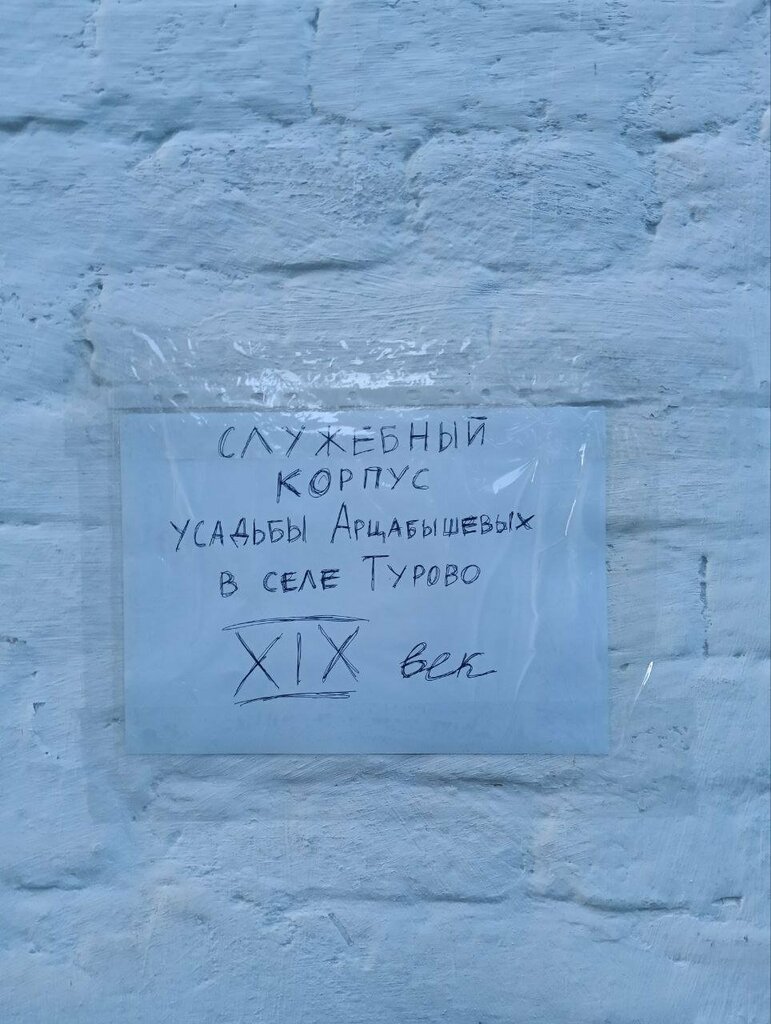 СЛУЖЕБНЫЙ
КОРПУС
УСАДЬБЫ АРЦАБЫШЕВЫХ
В СЕЛЕ ТУРОВО
XIX век